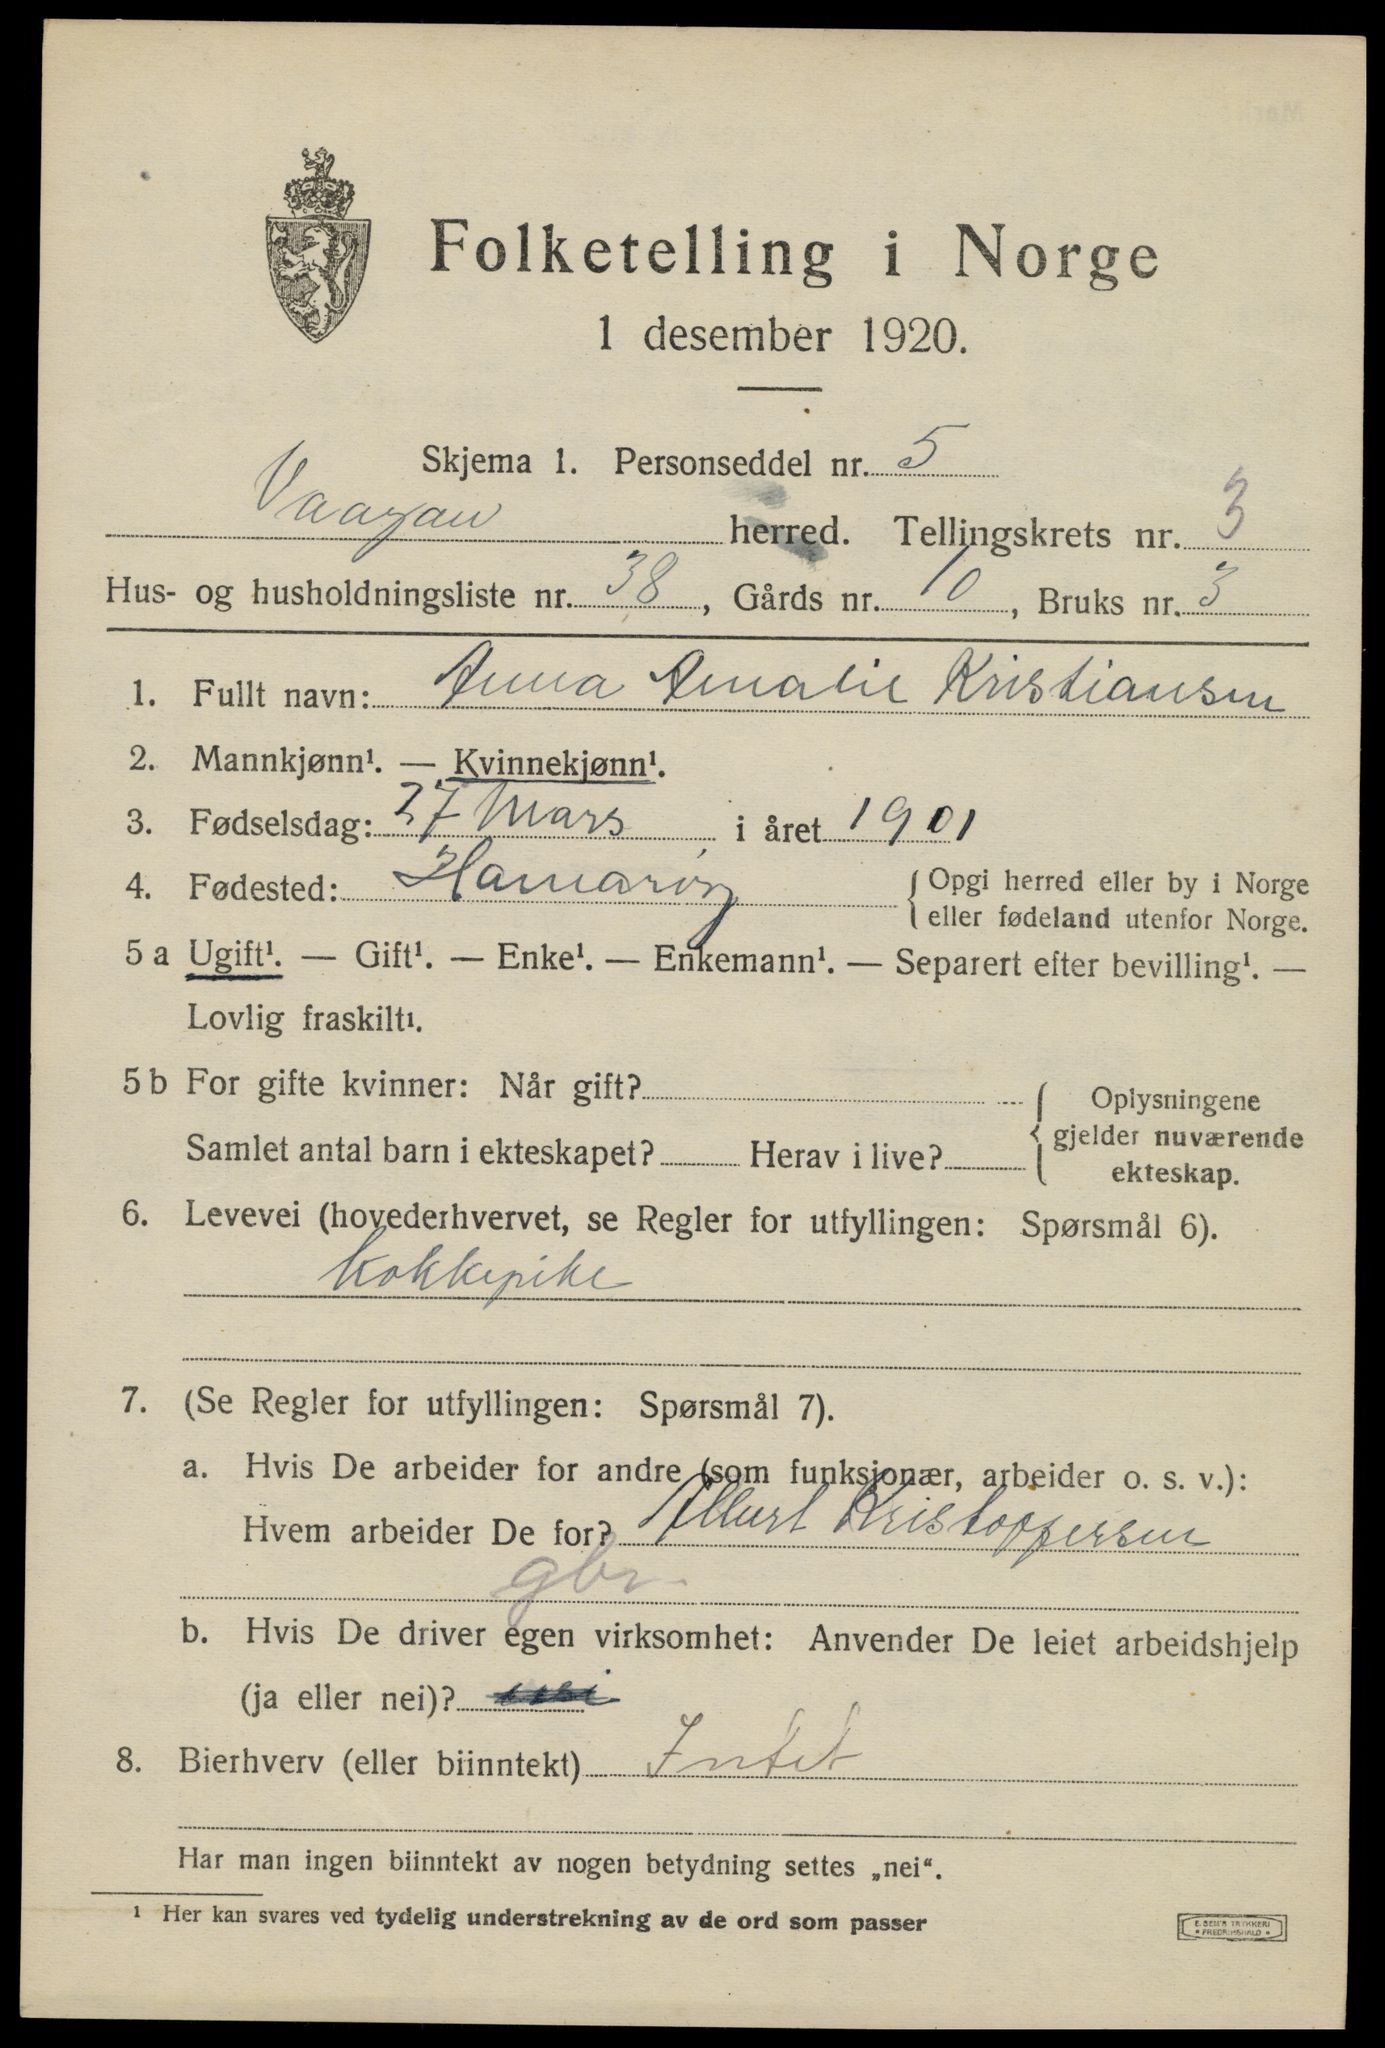 Folketelling i Norge
1 desember 1920.
Skjema 1. Personseddel nr. 5
Vaagan herred. Tellingskrets nr. 3
Hus- og husholdningsliste nr. 38, Gårds nr. 10, Bruks nr. 3
1. Fullt navn: Anna Amalie Kristiansen
2. Mannkjønn¹. — Kvinnekjønn¹.
3. Fødselsdag: 27 Mars i året 1901
4. Fødested: Hamarøy { Opgi herred eller by i Norge
eller fødeland utenfor Norge.
5 a Ugift¹. — Gift¹. — Enke¹. — Enkemann¹. — Separert efter bevilling¹. —
Lovlig fraskilt¹.
5 b For gifte kvinner: Når gift? { Oplysningene
gjelder nuværende
ekteskap.
Samlet antal barn i ekteskapet? Herav i live?
6. Levevei (hovederhvervet, se Regler for utfyllingen: Spørsmål 6).
Kokkepike
7. (Se Regler for utfyllingen: Spørsmål 7).
a. Hvis De arbeider for andre (som funksjonær, arbeider o. s. v.):
Hvem arbeider De for? Albert Kristoffersen
gbr
b. Hvis De driver egen virksomhet: Anvender De leiet arbeidshjelp
(ja eller nei)?
8. Bierhverv (eller biinntekt) Intet
Har man ingen biinntekt av nogen betydning settes „nei“.
¹ Her kan svares ved tydelig understrekning av de ord som passer
E. SEM'S TRYKKERI
• FREDRIKSHALD •